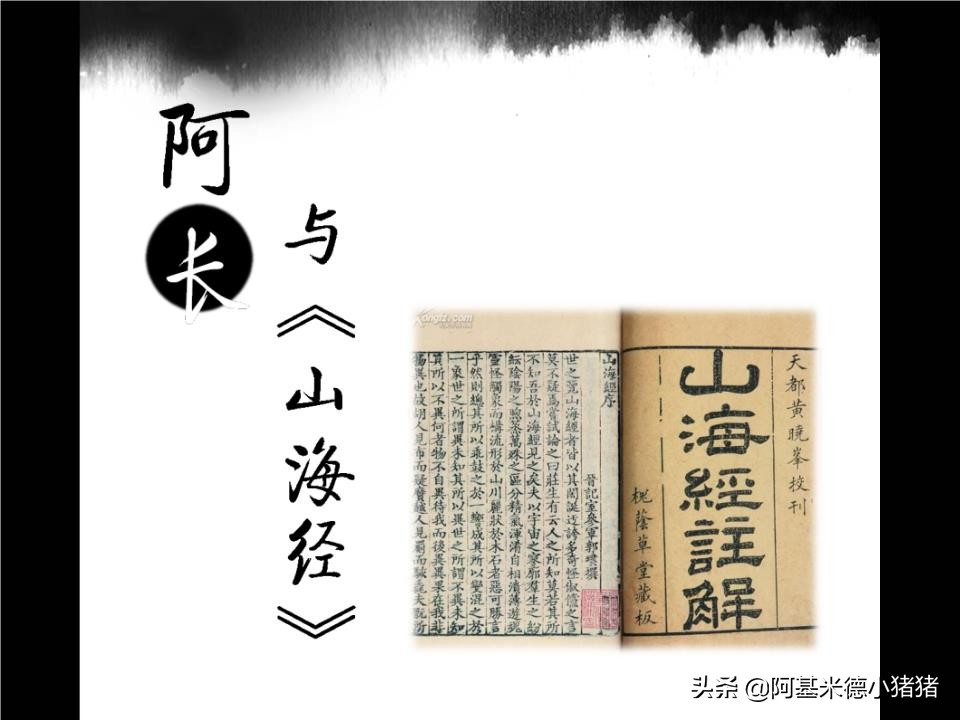 阿长
与《山海经》
天都黄曉峯挍刊
山海經註解
桃蔭草堂藏板
山海經序
晉記室參軍郭璞撰
世之覽山海經者皆以其閎誕迂誇多奇怪俶儻之言
莫不疑焉嘗試論之曰莊生有云人之所知莫若其所
不知吾於山海經見之矣夫以宇宙之寥廓群生之紛
紜陰陽之煦蒸萬殊之區分精氣渾淆自相濆薄遊魂
靈怪觸象而構流形於山川麗狀於木石者惡可勝言
乎然則總其所以乖鼓之於一響成其所以變混之於
一象世之所謂異未知其所以異世之所謂不異未知
其所以不異何者物不自異待我而後異異果在我非
物異也故胡人見布而疑黂越人見罽而駭毳夫翫所
Kongfz.com
头条 @阿基米德小猪猪